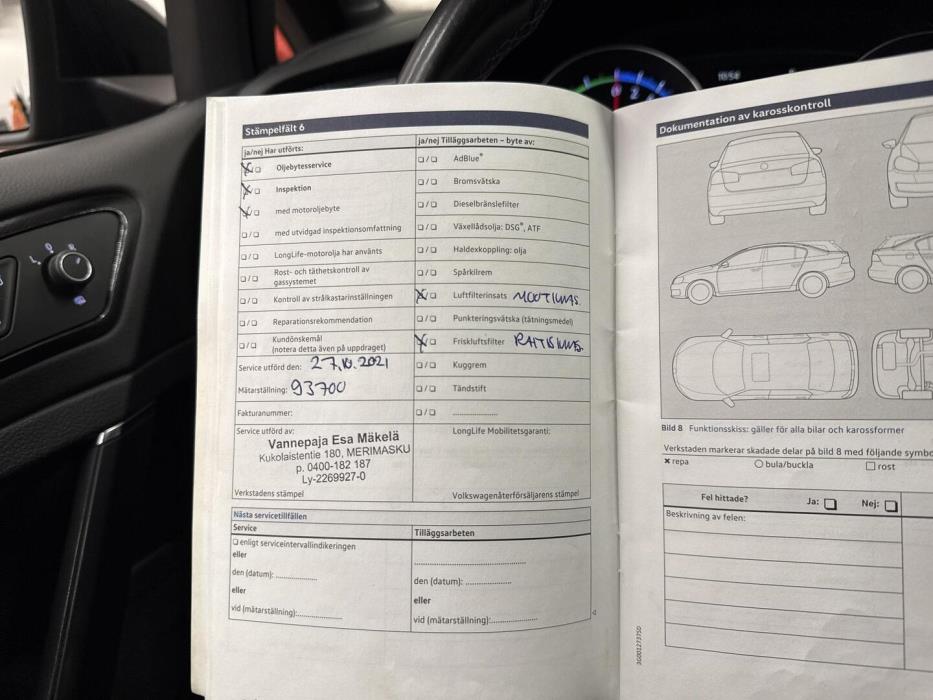 Stämpelfält 6
ja/nej Har utförts:
Oljebytesservice
Inspektion
med motoroljebyte
med utvidgad inspektionsomfattning
LongLife-motorolja har använts
Rost- och täthetskontroll av
gassystemet
Kontroll av strålkastarinställningen
Reparationsrekommendation
Kundönskemål
(notera detta även på uppdraget)
Service utförd den: 27.10.2021
Mätarställning: 93700
Fakturanummer:
Service utförd av:
Vannepaja Esa Mäkelä
Kukolaistentie 180, MERIMASKU
p. 0400-182 187
Ly-2269927-0
Verkstadens stämpel
ja/nej Tilläggsarbeten – byte av:
AdBlue®
Bromsvätska
Dieselbränslefilter
Växellådsolja: DSG®, ATF
Haldexkoppling: olja
Spårkilrem
Luftfilterinsats MOOTTORIN
Punkteringsvätska (tätningsmedel)
Friskluftsfilter RAITIS ILMAS.
Kuggrem
Tändstift
LongLife Mobilitetsgaranti:
Volkswagenåterförsäljarens stämpel
Nästa servicetillfällen
Service
enligt serviceintervallindikeringen
eller
den (datum):
eller
vid (mätarställning):
Tilläggsarbeten
den (datum):
eller
vid (mätarställning):
Dokumentation av karosskontroll
Bild 8 Funktionsskiss: gäller för alla bilar och karossformer
Verkstaden markerar skadade delar på bild 8 med följande symbo
repa bula/buckla rost
Fel hittade? Ja: Nej:
Beskrivning av felen:
3G0012737SD